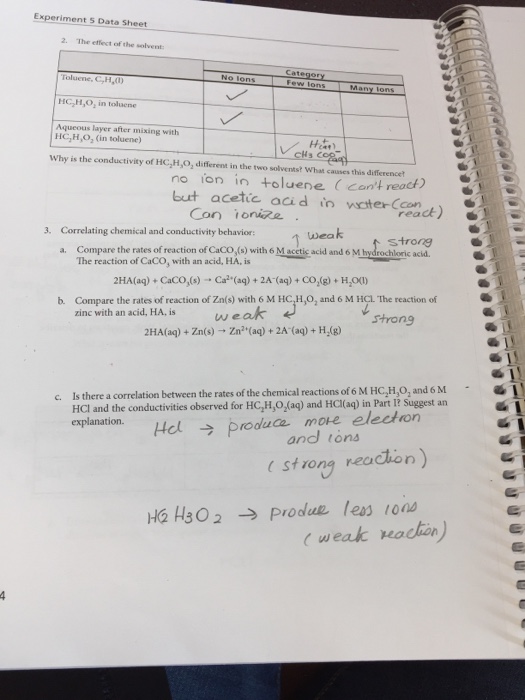 Experiment 5 Data Sheet
2. The effect of the solvent:
Category
No Ions Few Ions Many Ions
Toluene, C₇H₈(l) ✓
HC₂H₃O₂ in toluene ✓
Aqueous layer after mixing with
HC₂H₃O₂ (in toluene) ✓ H⁺(aq)
CH₃COO⁻(aq)
Why is the conductivity of HC₂H₃O₂ different in the two solvents? What causes this difference?
no ion in toluene (can't react)
but acetic acid in water (can react)
Can ionize.
3. Correlating chemical and conductivity behavior:
weak strong
a. Compare the rates of reaction of CaCO₃(s) with 6 M acetic acid and 6 M hydrochloric acid.
The reaction of CaCO₃ with an acid, HA, is
2HA(aq) + CaCO₃(s) → Ca²⁺(aq) + 2A⁻(aq) + CO₂(g) + H₂O(l)
b. Compare the rates of reaction of Zn(s) with 6 M HC₂H₃O₂ and 6 M HCl. The reaction of
zinc with an acid, HA, is
weak strong
2HA(aq) + Zn(s) → Zn²⁺(aq) + 2A⁻(aq) + H₂(g)
c. Is there a correlation between the rates of the chemical reactions of 6 M HC₂H₃O₂ and 6 M
HCl and the conductivities observed for HC₂H₃O₂(aq) and HCl(aq) in Part I? Suggest an
explanation.
Hcl → produce more electron
and ions
(strong reaction)
HC2H3O2 → produce less ions
(weak reaction)
4